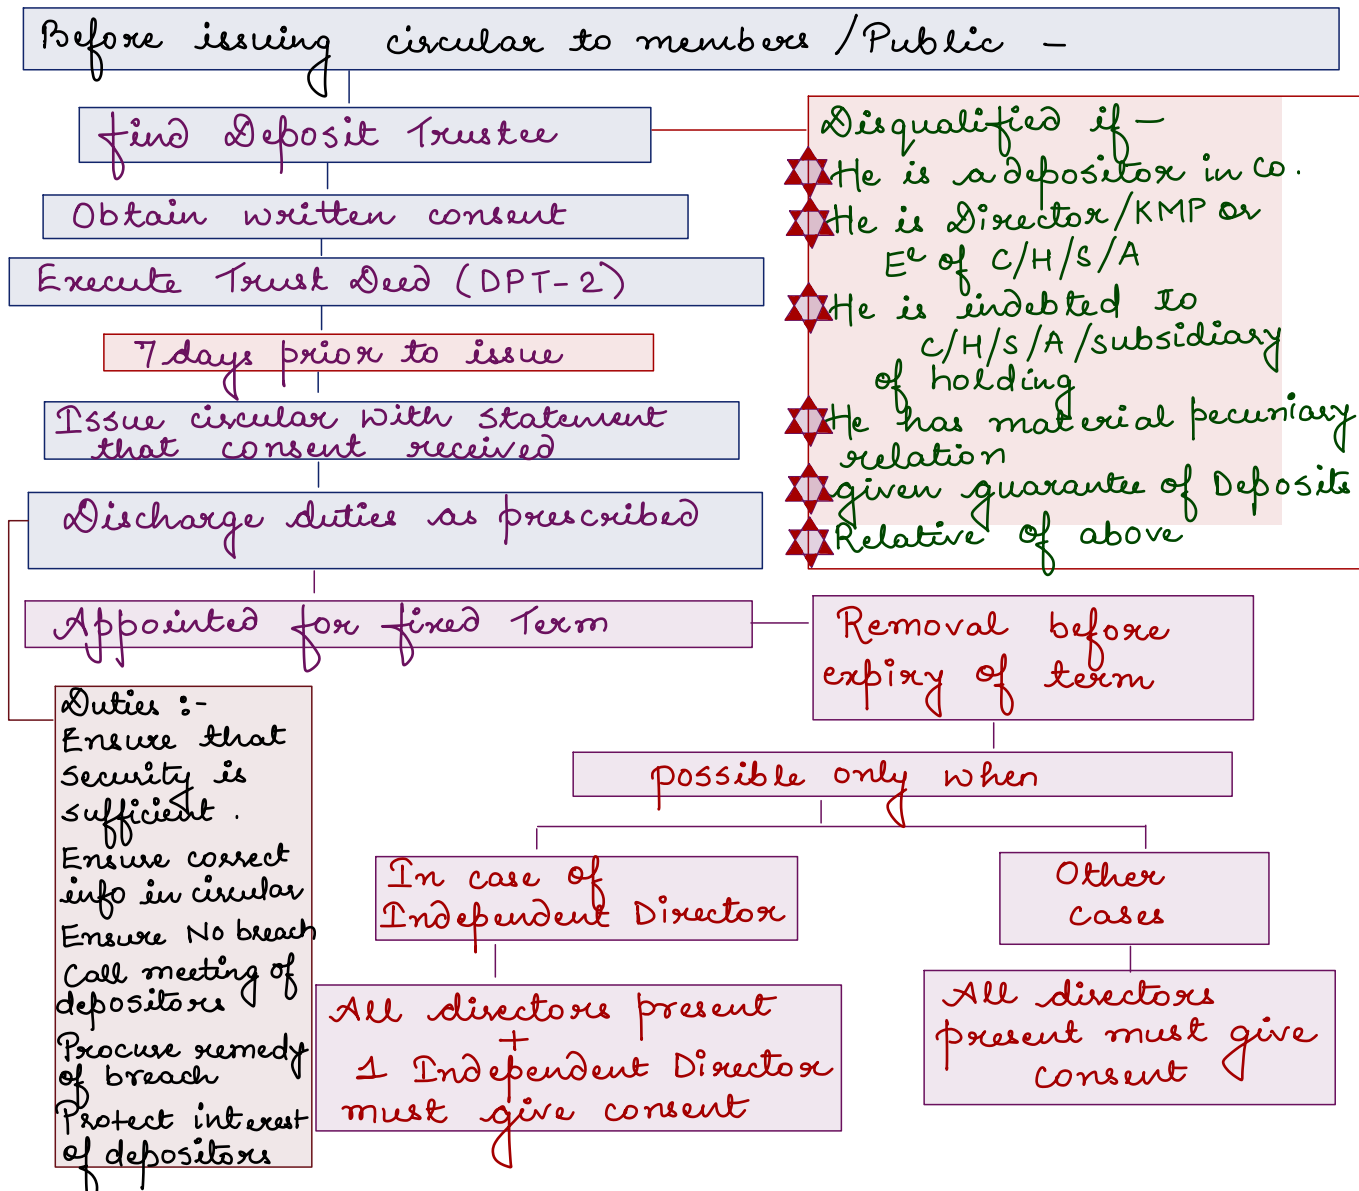 Before issuing circular to members / Public -
find Deposit Trustee
Obtain written consent
Execute Trust Deed (DPT-2)
7 days prior to issue
Issue circular with statement
that consent received
Discharge duties as prescribed
Appointed for fixed Term
Disqualified if -
He is a depositor in co.
He is Director/KMP or
Ee of C/H/S/A
He is indebted to
C/H/S/A/subsidiary
of holding
He has material pecuniary
relation
given guarantee of Deposits
Relative of above
Removal before
expiry of term
possible only when
In case of
Independent Director
All directors present
+
1 Independent Director
must give consent
Other
cases
All directors
present must give
consent
Duties :-
Ensure that
security is
sufficient .
Ensure correct
info in circular
Ensure No breach
Call meeting of
depositors
Procuse remedy
of breach
Protect interest
of depositors